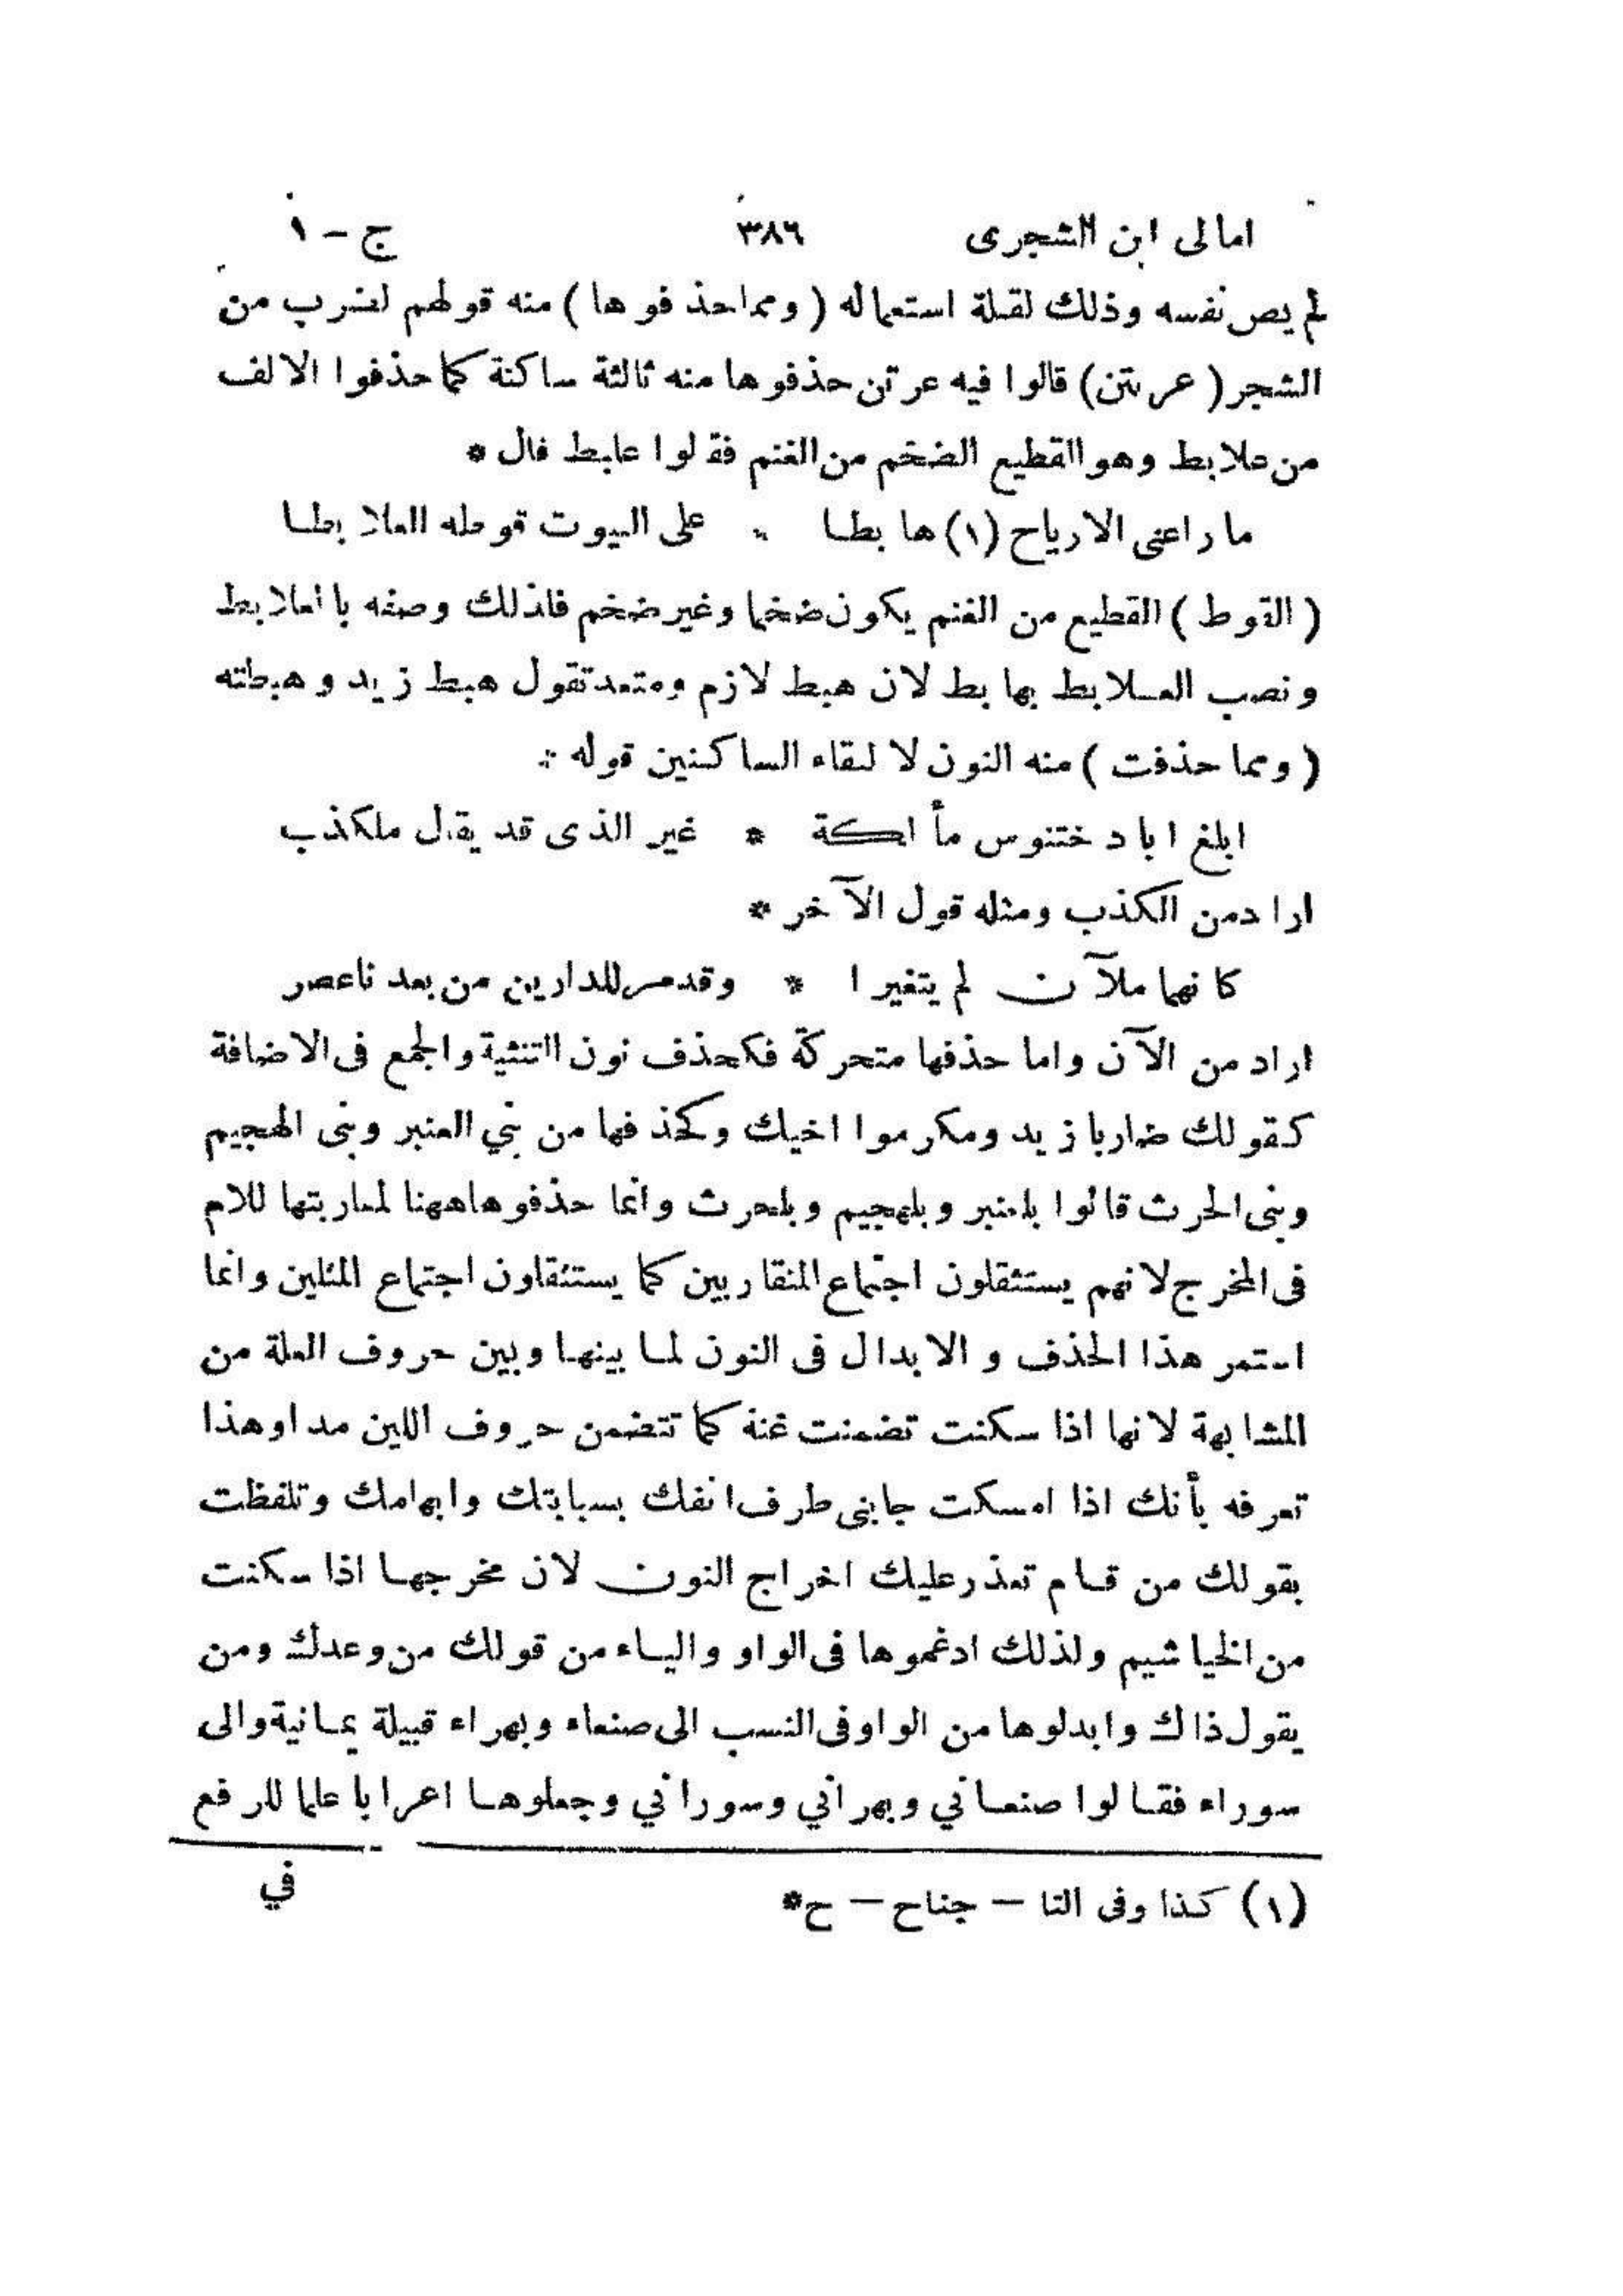 امالى ابن الشجرى ٣٨٦ ج - ١
لم يص نفسه وذلك لقلة استعماله ( ومما حذفوها ) منه قولهم لضرب من
الشجر ( عرنتن ) قالوا فيه عرتن حذفوها منه ثالثة ساكنة كما حذفوا الالف
من علابط وهو القطيع الضخم من الغنم فقالوا علبط قال *
ما راعنى الا رياح (١) هابطا * على البيوت قوطه العلابطا
( القوط ) القطيع من الغنم يكون ضخما وغير ضخم فلذلك وصفه بالعلابط
ونصب العلابط بهابط لان هبط لازم ومتعد تقول هبط زيد وهبطته
( ومما حذفت ) منه النون لالتقاء الساكنين قوله *
ابلغ ابا دختنوس مألكة * غير الذى قد يقال ملكذب
اراد من الكذب ومثله قول الآخر *
كانهما ملآن لم يتغيرا * وقد مر للدارين من بعدنا عصر
اراد من الآن واما حذفها متحركة فكحذف نون التثنية والجمع فى الاضافة
كقولك ضاربا زيد ومكرموا اخيك وكحذفها من بني العنبر وبنى الهجيم
وبنى الحرث قالوا بلعنبر وبلهجيم وبلحرث وانما حذفوها ههنا لمقاربتها للام
فى المخرج لانهم يستثقلون اجتماع المتقاربين كما يستثقلون اجتماع المثلين وانما
استمر هذا الحذف و الابدال فى النون لما بينها وبين حروف العلة من
المشابهة لانها اذا سكنت تضمنت غنة كما تتضمن حروف اللين مدا وهذا
تعرفه بأنك اذا امسكت جانبى طرف انفك بسبابتك وابهامك وتلفظت
بقولك من قام تعذر عليك اخراج النون لان مخرجها اذا سكنت
من الخياشيم ولذلك ادغموها فى الواو والياء من قولك من وعدك ومن
يقول ذاك وابدلوها من الواو فى النسب الى صنعاء وبهراء قبيلة يمانية والى
سوراء فقالوا صنعاني وبهراني وسوراني وجعلوها اعرابا علما للرفع
في
(١) كذا وفى التا - جناح - ح*